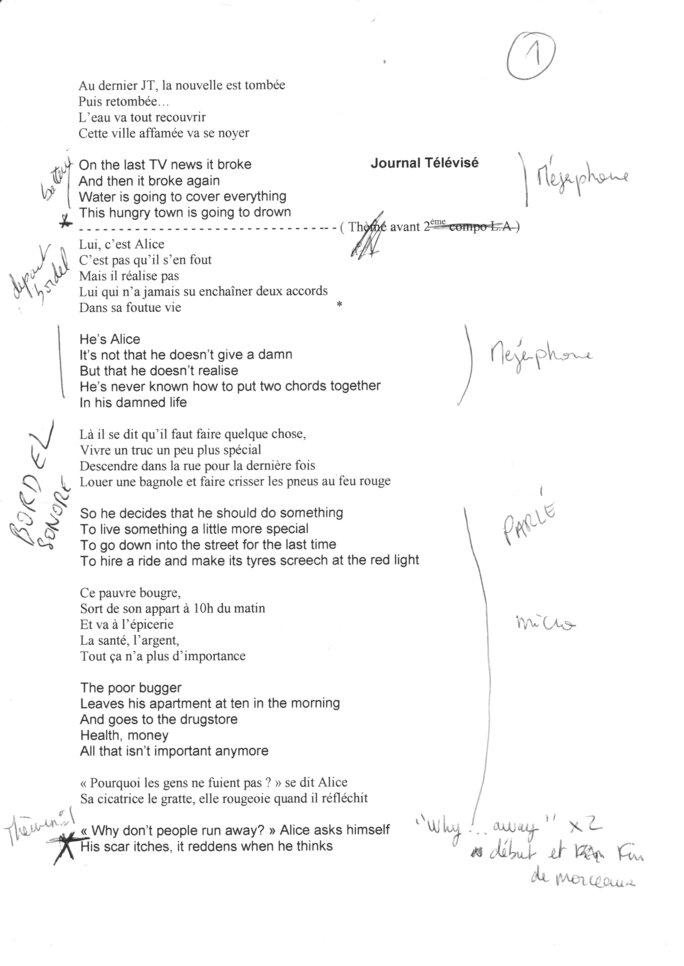 1
Au dernier JT, la nouvelle est tombée
Puis retombée…
L'eau va tout recouvrir
Cette ville affamée va se noyer
On the last TV news it broke
Journal Télévisé
And then it broke again
Mégaphone
Water is going to cover everything
This hungry town is going to drown
* ---------------------------------- ( Thomé avant 2ème compo L.A )
Lui, c'est Alice
départ
bordel
C'est pas qu'il s'en fout
Mais il réalise pas
Lui qui n'a jamais su enchaîner deux accords
Dans sa foutue vie *
He's Alice
It's not that he doesn't give a damn
Mégaphone
But that he doesn't realise
He's never known how to put two chords together
In his damned life
BORDEL
SONORE
Là il se dit qu'il faut faire quelque chose,
Vivre un truc un peu plus spécial
Descendre dans la rue pour la dernière fois
Louer une bagnole et faire crisser les pneus au feu rouge
So he decides that he should do something
PARLÉ
To live something a little more special
To go down into the street for the last time
To hire a ride and make its tyres screech at the red light
Ce pauvre bougre,
Sort de son appart à 10h du matin
Et va à l'épicerie
micro
La santé, l'argent,
Tout ça n'a plus d'importance
The poor bugger
Leaves his apartment at ten in the morning
And goes to the drugstore
Health, money
All that isn't important anymore
« Pourquoi les gens ne fuient pas ? » se dit Alice
Sa cicatrice le gratte, elle rougeoie quand il réfléchit
« Why don't people run away? » Alice asks himself
His scar itches, it reddens when he thinks
"Why ... away" x2
début et Fin
de morceaux